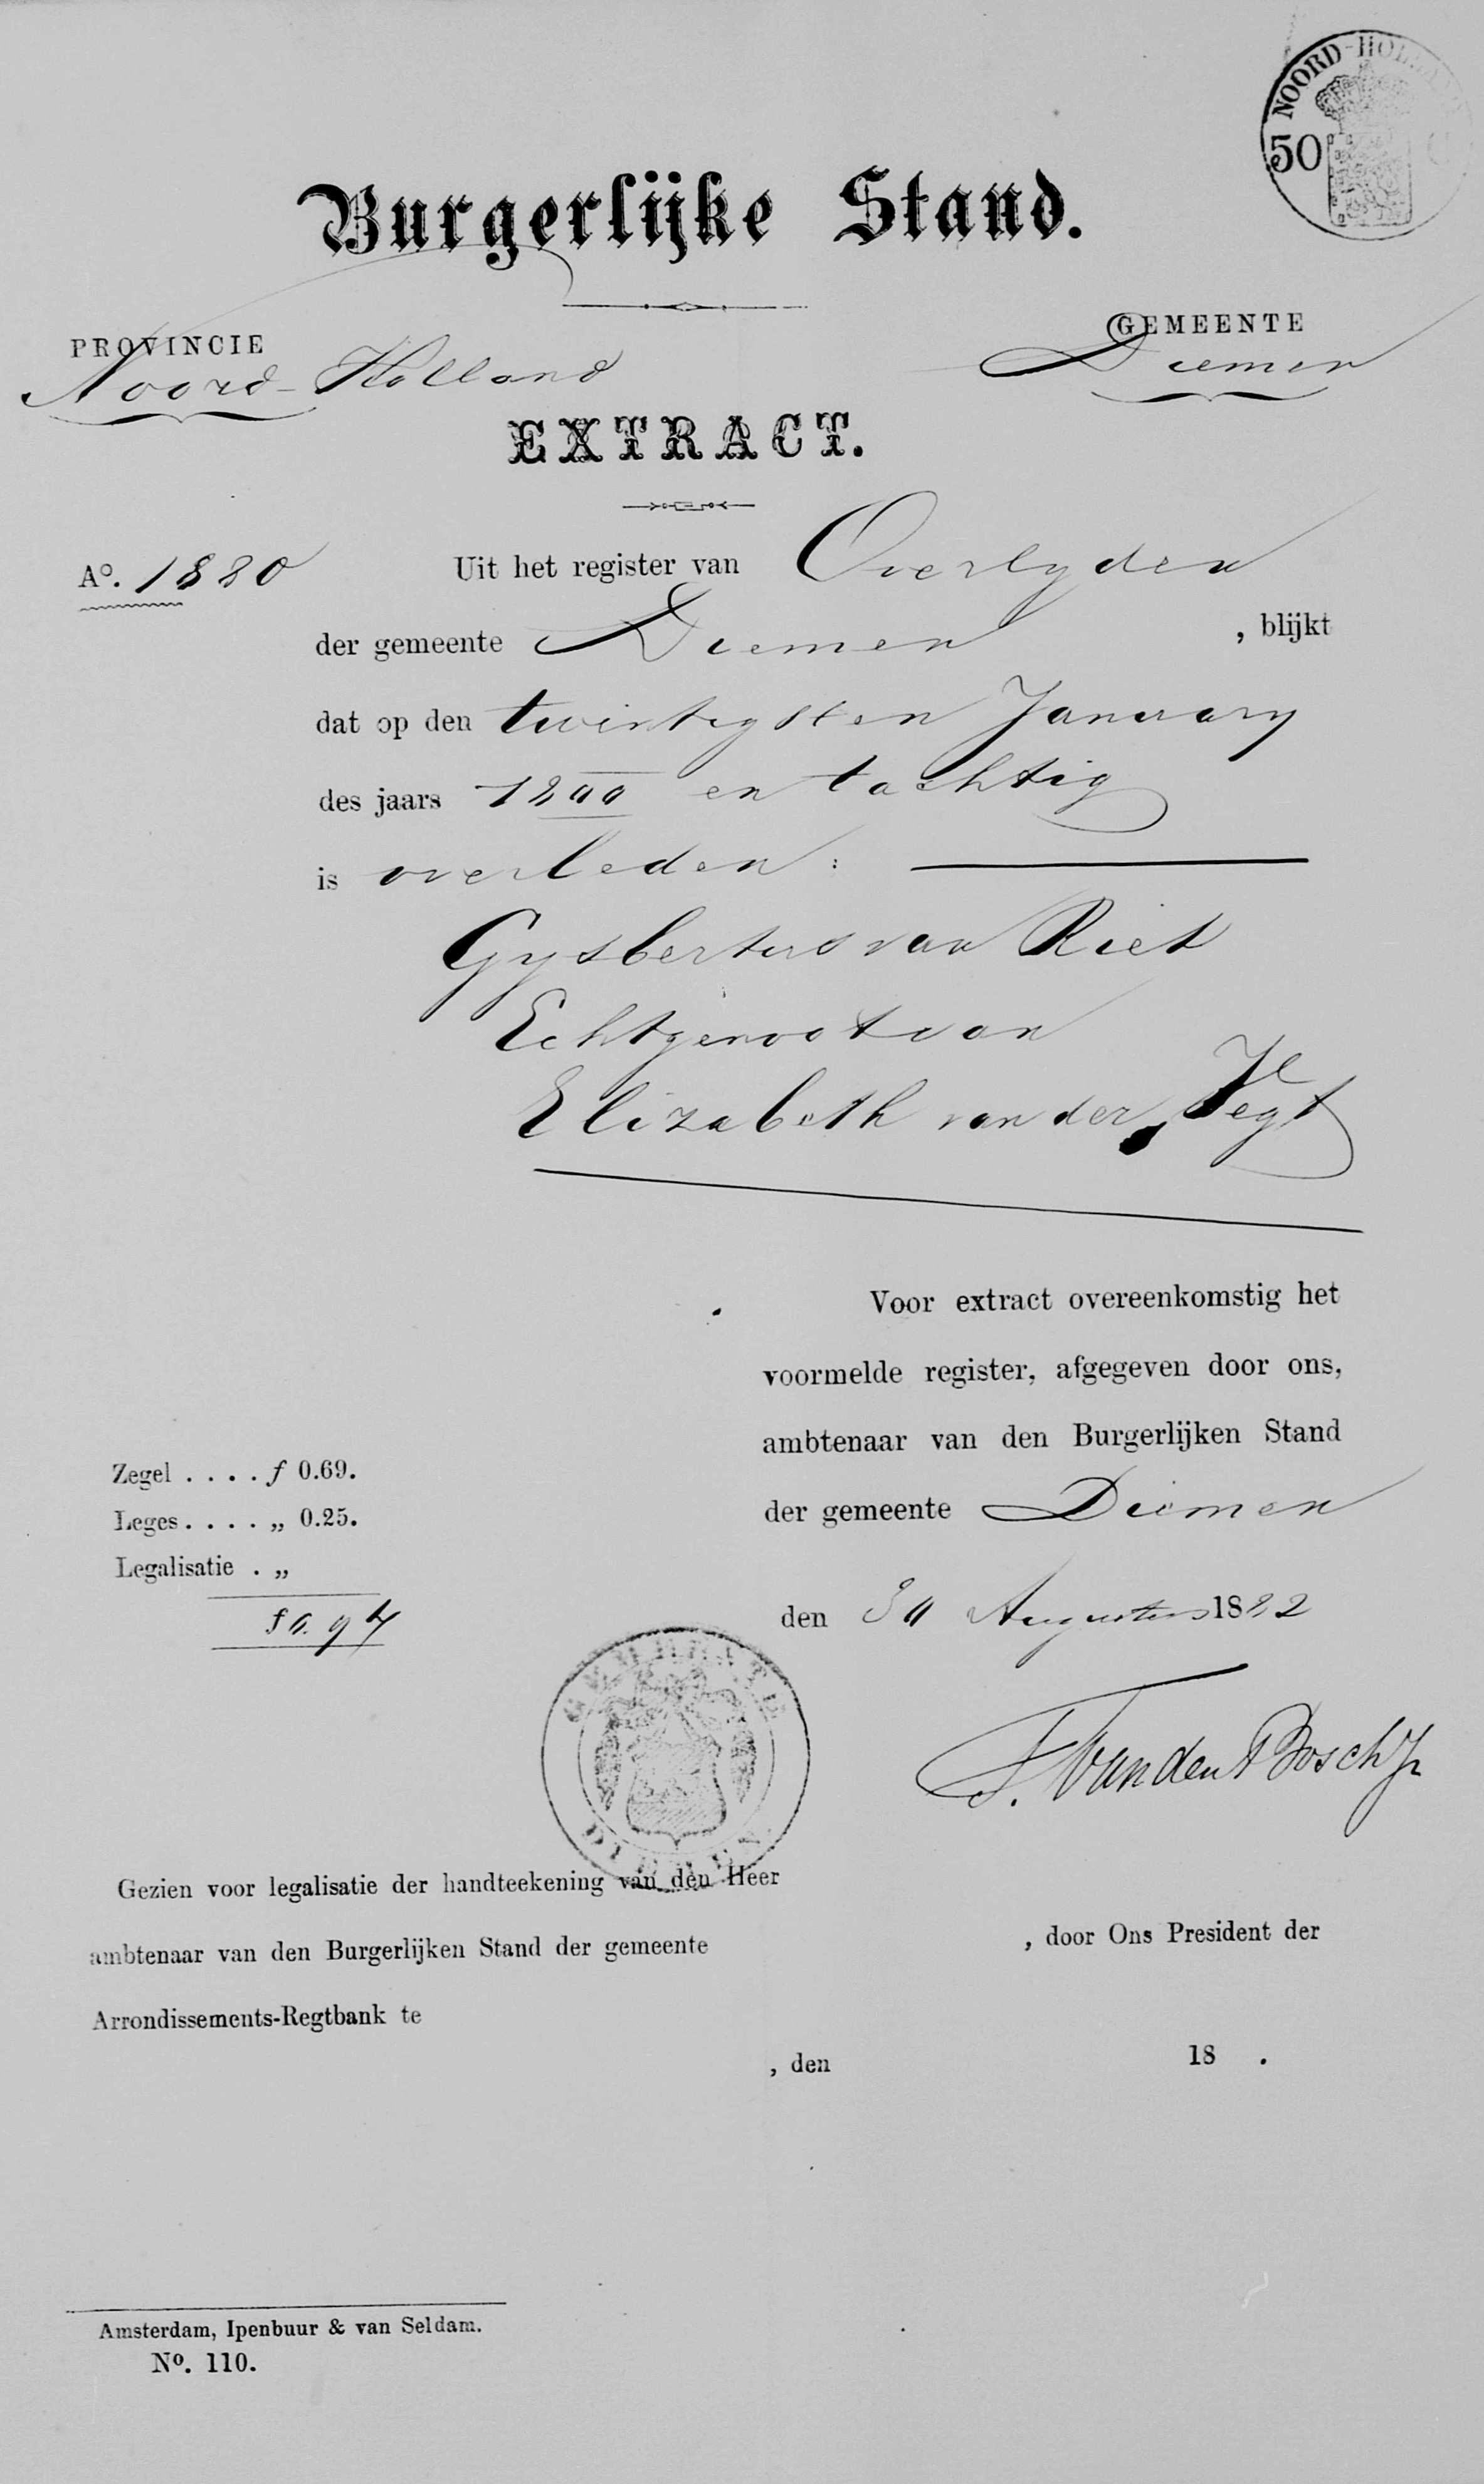 NOORD-HOLLAND
50 C
Burgerlijke Stand.
PROVINCIE
Noord-Holland
GEMEENTE
Diemen
EXTRACT.
Aº. 1880
Uit het register van Overlyden
der gemeente Diemen , blijkt
dat op den twintigsten January
des jaars 1800 en tachtig
is overleden :
Gysbertus van Riet
Echtgenoot van
Elizabeth van der Vegt
Voor extract overeenkomstig het
voormelde register, afgegeven door ons,
ambtenaar van den Burgerlijken Stand
der gemeente Diemen
den 30 Augustus 1882
Zegel . . . . f 0.69.
Leges . . . . „ 0.25.
Legalisatie . „
f 0.94
GEMEENTE
DIEMEN
F. van den Bosch Jr
Gezien voor legalisatie der handteekening van den Heer
ambtenaar van den Burgerlijken Stand der gemeente , door Ons President der
Arrondissements-Regtbank te
, den 18 .
Amsterdam, Ipenbuur & van Seldam.
Nº. 110.